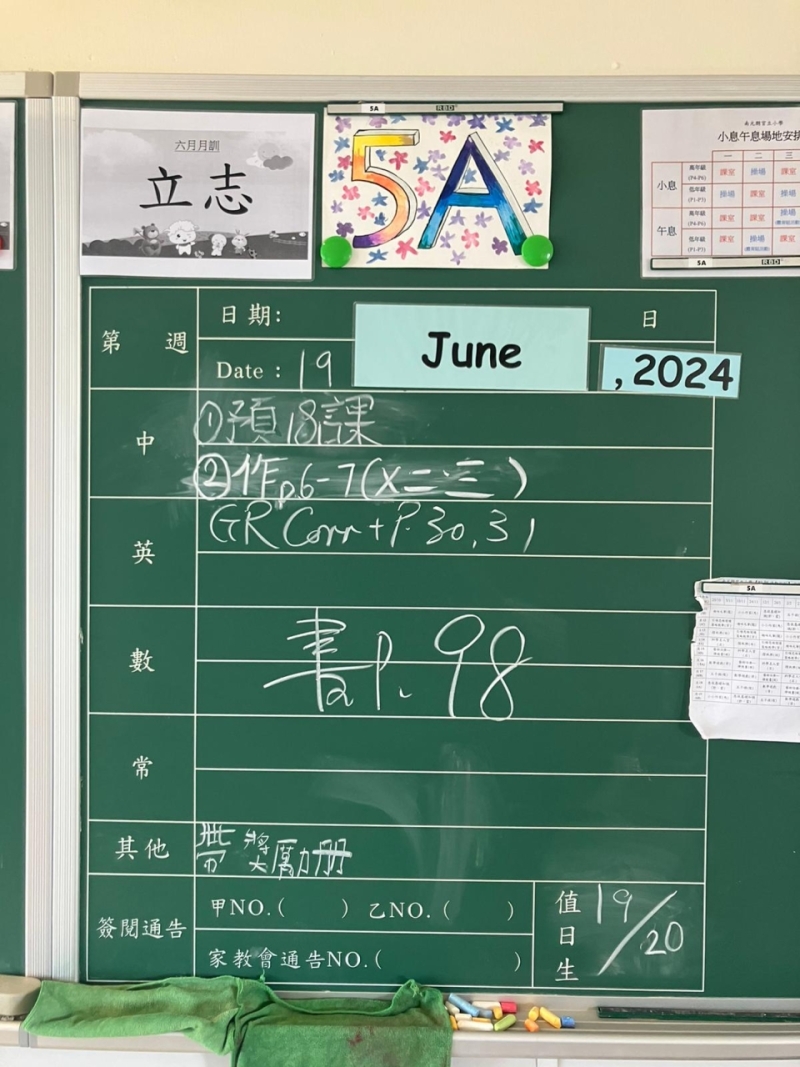 六月月訓
立志
5A
5A
小息午息場地安排
一 二 三
小息 高年級 (P4-P6) 課室 操場 課室
低年級 (P1-P3) 操場 課室 操場
午息 高年級 (P4-P6) 課室 課室 操場
低年級 (P1-P3) 課室 操場 課室
5A
第 週
日期: 日
Date : 19 June , 2024
中
①預18課
②作p.6-7(X二、三)
英
GR Corr + P.30,31
5A
數
書P. 98
常
其他
帶獎勵册
簽閱通告
甲NO.( ) 乙NO.( )
家教會通告NO.( )
值日生 19/20